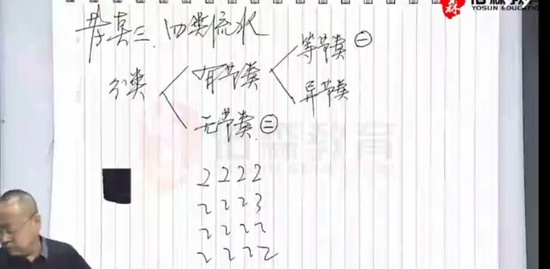 佑森教育
YOSUN EDUCATION
考点三、四类流水
分类
有节奏
等节奏 ㊀
异节奏
无节奏 ㊁
佑森教育
2 2 2 2
2 2 2 3
2 2 2 2
2 2 2 2